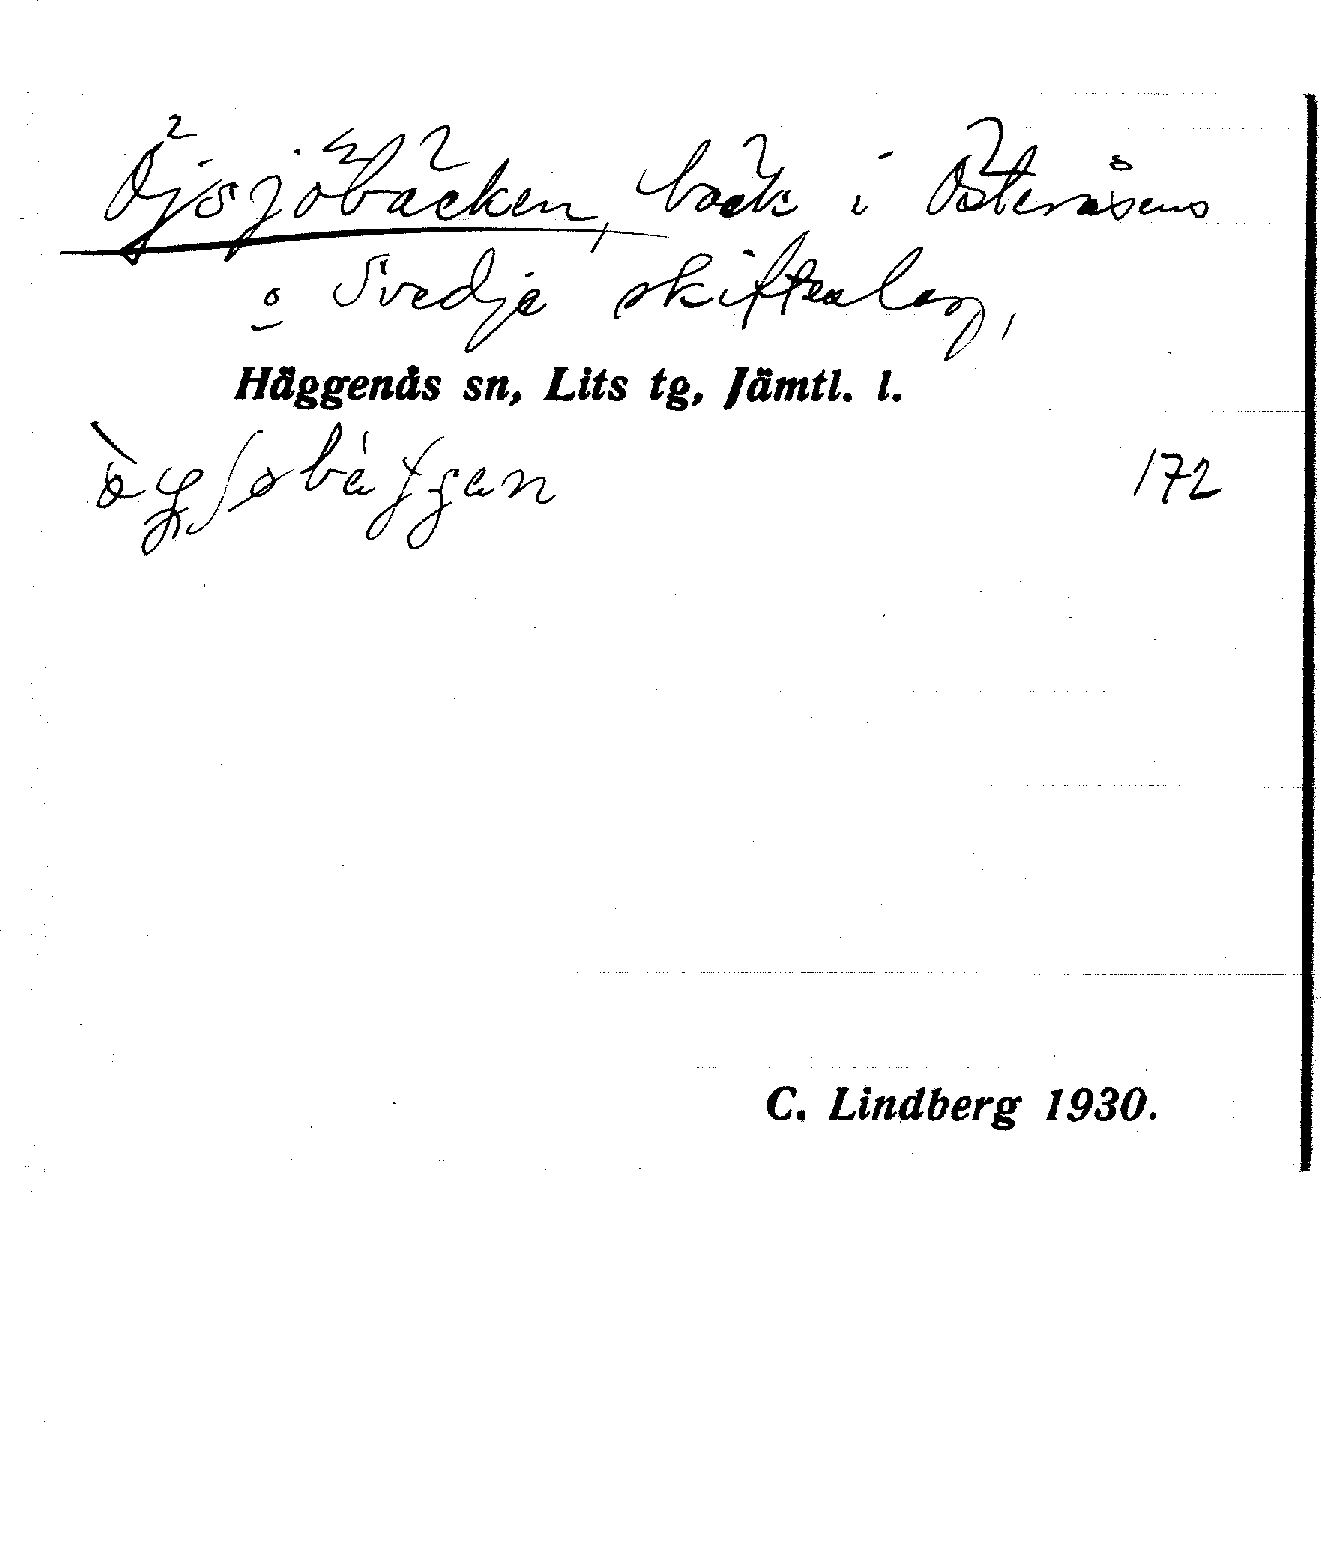 Öjsjöbäcken, bäck i Österåsens
o Svedje skifteslag,
Häggenås sn, Lits tg, Jämtl. l.
172
C. Lindberg 1930.